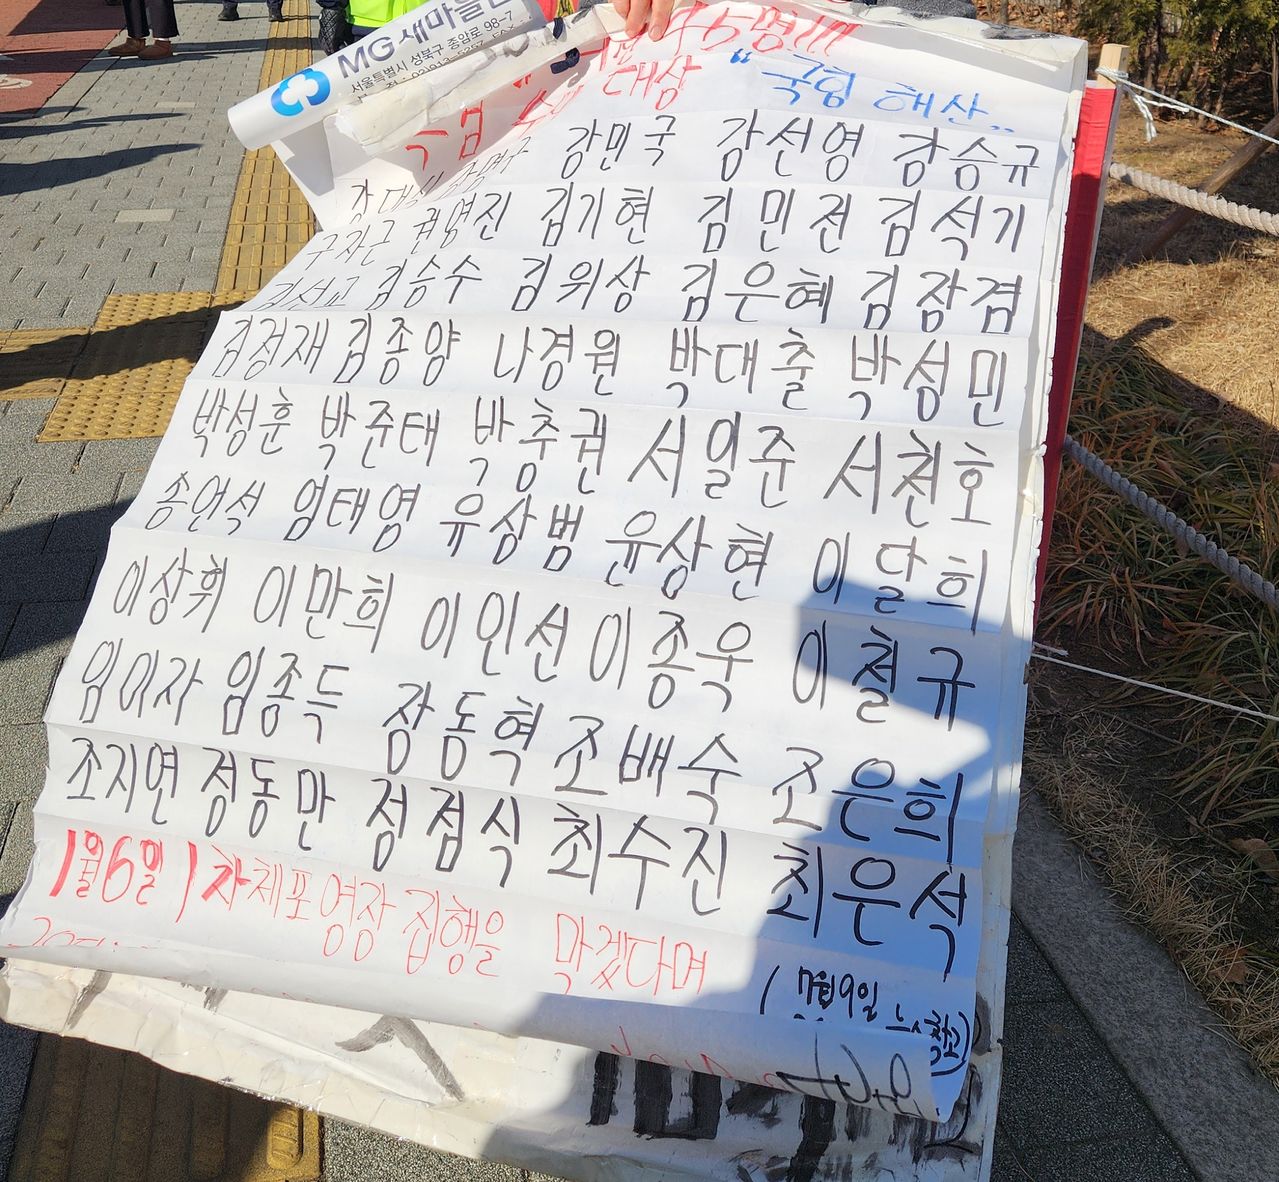 MG새마을금
서울특별시 성북구 종암로 98-7
45명!!!
대상 "국힘 해산"
강대식 강명구 강민국 강선영 강승규
구자근 권영진 김기현 김민전 김석기
김선교 김승수 김위상 김은혜 김장겸
김정재 김종양 나경원 박대출 박성민
박성훈 박준태 박충권 서일준 서천호
송언석 엄태영 유상범 윤상현 이달희
이상휘 이만희 이인선 이종욱 이철규
임이자 임종득 장동혁 조배숙 조은희
조지연 정동만 정점식 최수진 최은석
1월6일 1차체포영장 집행을 막겠다며
(7월9일